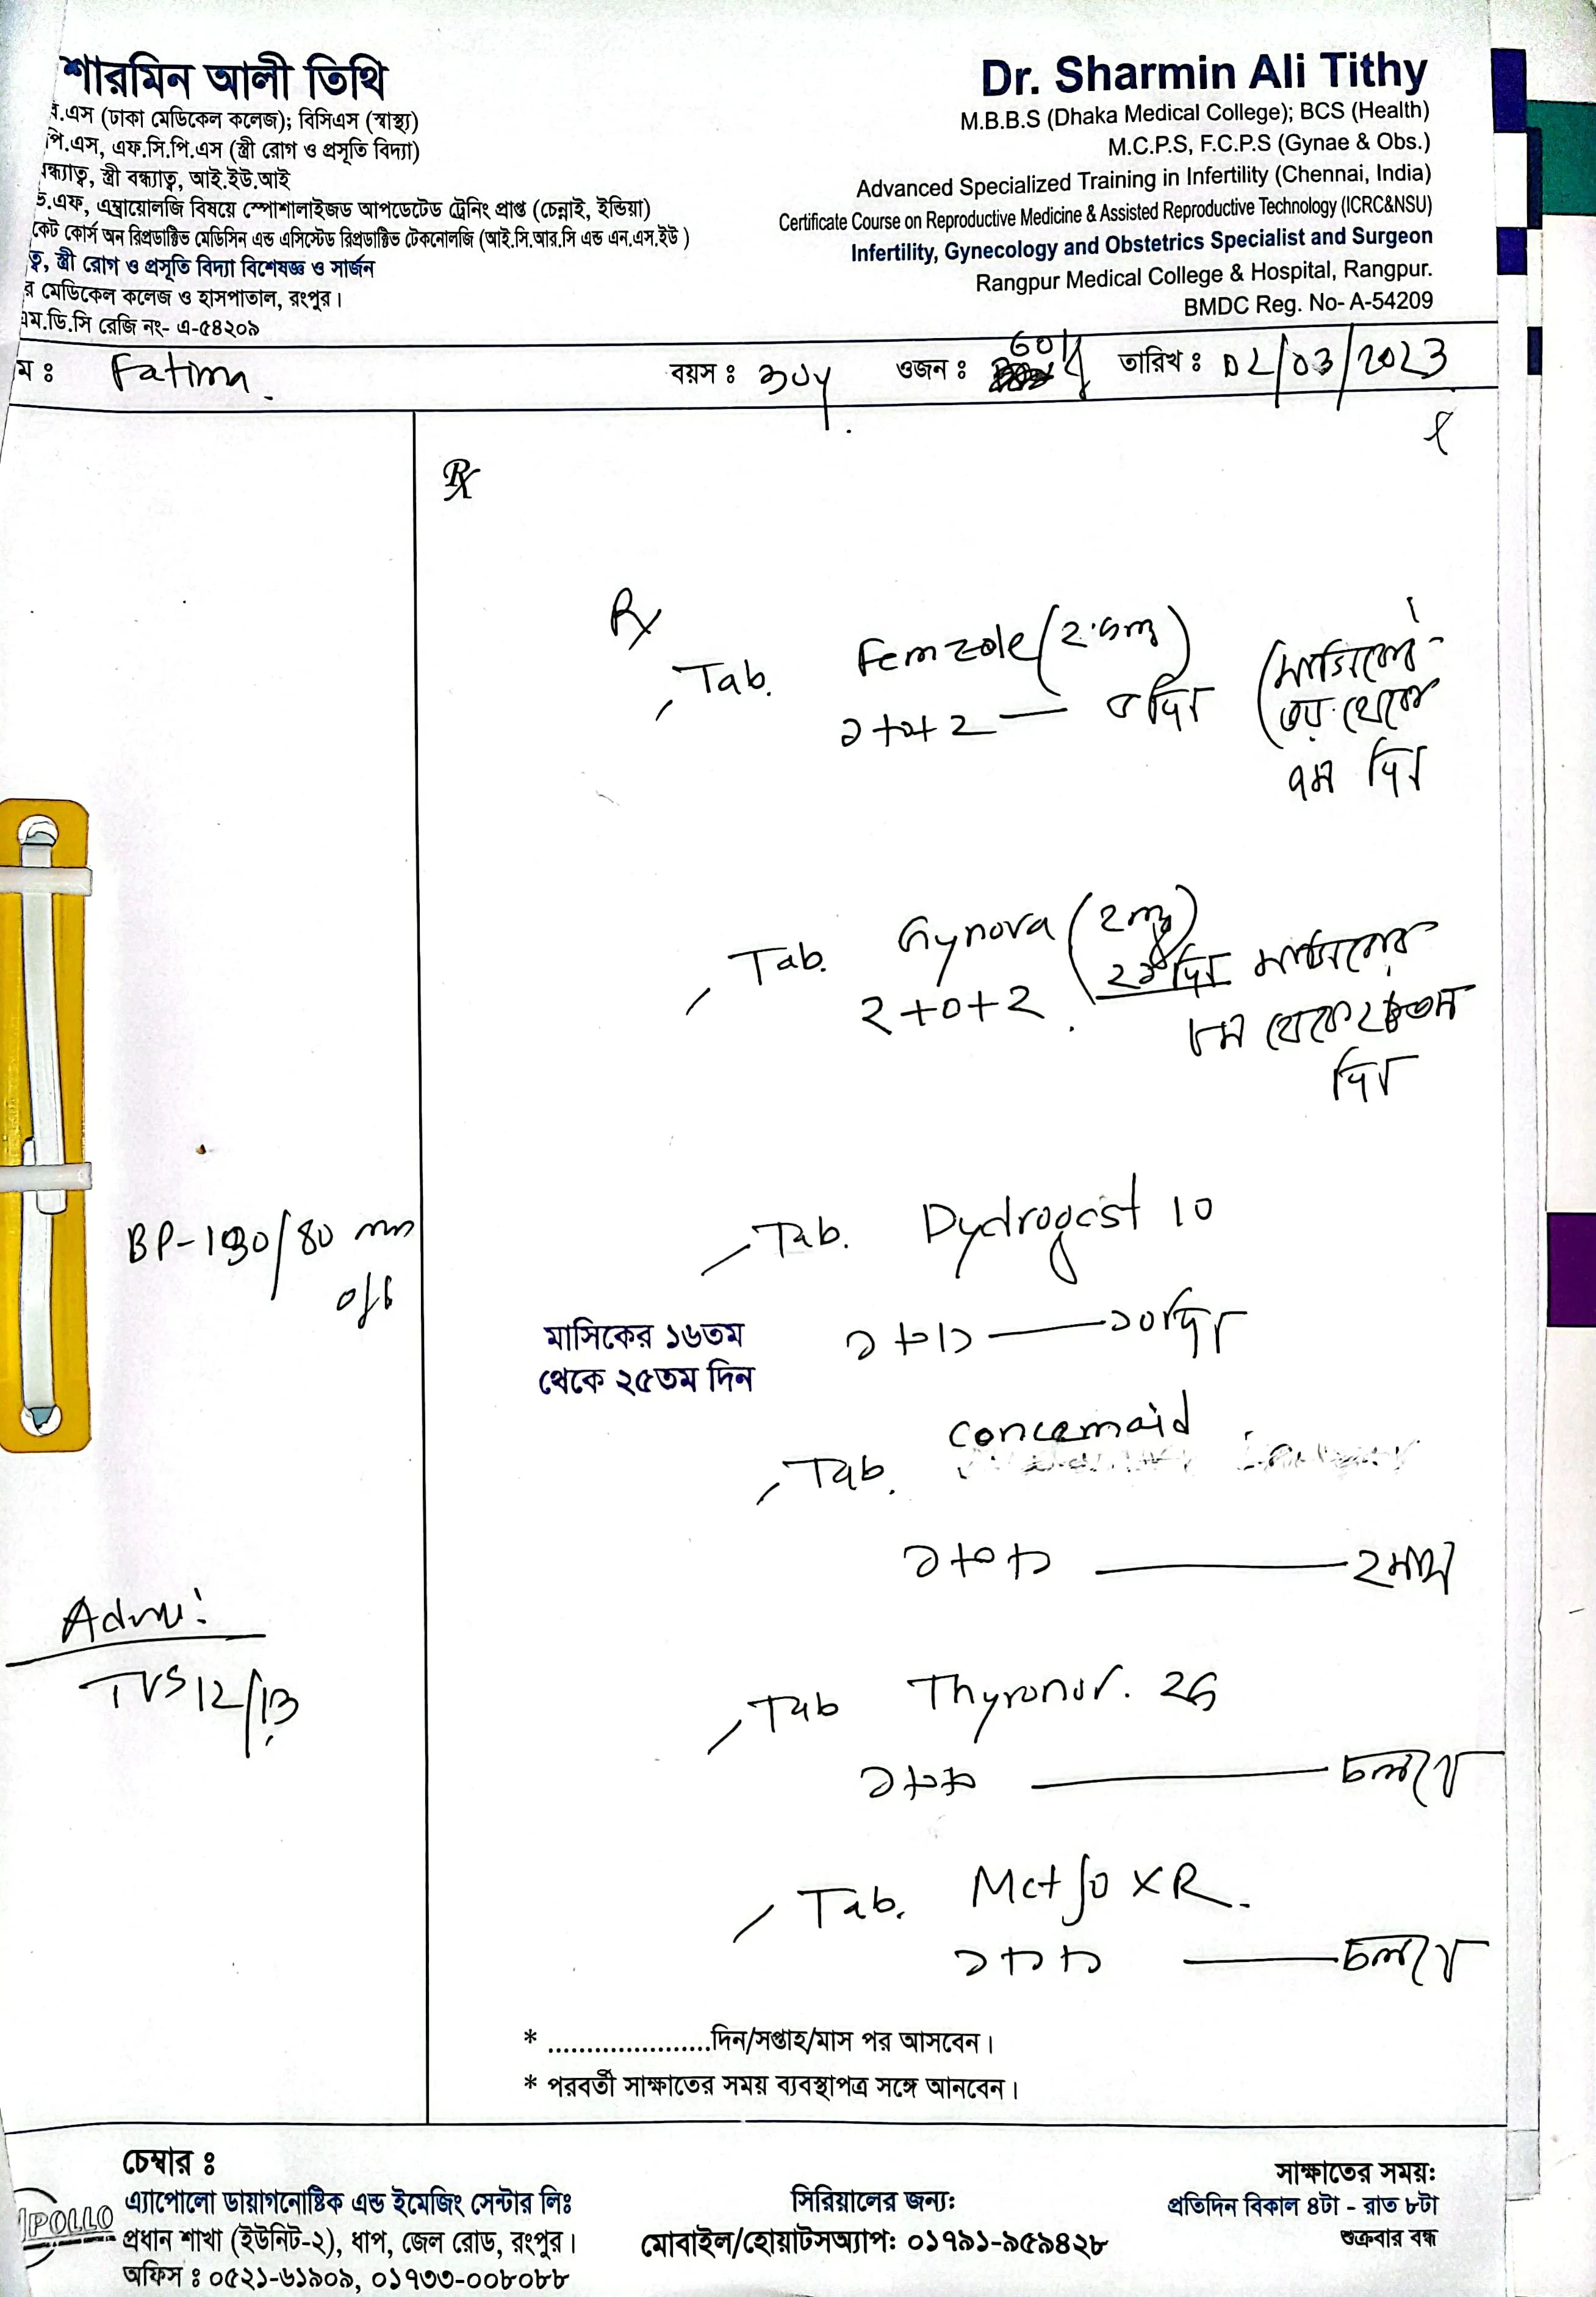 শারমিন আলী তিথি
বি.এস (ঢাকা মেডিকেল কলেজ); বিসিএস (স্বাস্থ্য)
পি.এস, এফ.সি.পি.এস (স্ত্রী রোগ ও প্রসূতি বিদ্যা)
ন্ধ্যাত্ব, স্ত্রী বন্ধ্যাত্ব, আই.ইউ.আই
ভি.এফ, এম্ব্রায়োলজি বিষয়ে স্পেশালাইজড আপডেটেড ট্রেনিং প্রাপ্ত (চেন্নাই, ইন্ডিয়া)
কেট কোর্স অন রিপ্রডাক্টিভ মেডিসিন এন্ড এসিস্টেড রিপ্রডাক্টিভ টেকনোলজি (আই.সি.আর.সি এন্ড এন.এস.ইউ )
ত্ব, স্ত্রী রোগ ও প্রসূতি বিদ্যা বিশেষজ্ঞ ও সার্জন
র মেডিকেল কলেজ ও হাসপাতাল, রংপুর।
এম.ডি.সি রেজি নং- এ-৫৪২০৯
Dr. Sharmin Ali Tithy
M.B.B.S (Dhaka Medical College); BCS (Health)
M.C.P.S, F.C.P.S (Gynae & Obs.)
Advanced Specialized Training in Infertility (Chennai, India)
Certificate Course on Reproductive Medicine & Assisted Reproductive Technology (ICRC&NSU)
Infertility, Gynecology and Obstetrics Specialist and Surgeon
Rangpur Medical College & Hospital, Rangpur.
BMDC Reg. No- A-54209
ম ঃ Fatima বয়স ঃ ওজন ঃ 60 তারিখ ঃ 02/03/2023
Rx
Rx
Tab. Femzole (2.5mg)
২+০+২ — ৫ দিন (মাসিকের
৩য় থেকে
৭ম দিন
Tab. Gynova (2mg)
2+0+2 মাসিকের
৮ম থেকে
দিন
BP-130/80 mm
of
Tab. Dydrogest 10
১+০+১ — ১০ দিন
মাসিকের ১৬তম
থেকে ২৫তম দিন
Concemaid
Tab.
১+০+১ — ২ মাস
Adv:
TVS 12/13
Tab Thyronor. 25
১+০+০ — চলবে
Tab. Metfo XR.
১+০+১ — চলবে
* .....................দিন/সপ্তাহ/মাস পর আসবেন।
* পরবর্তী সাক্ষাতের সময় ব্যবস্থাপত্র সঙ্গে আনবেন।
চেম্বার ঃ
POLLO
এ্যাপোলো ডায়াগনোষ্টিক এন্ড ইমেজিং সেন্টার লিঃ
প্রধান শাখা (ইউনিট-২), ধাপ, জেল রোড, রংপুর।
অফিস ঃ ০৫২১-৬১৯০৯, ০১৭৩৩-০০৮০৮৮
সিরিয়ালের জন্য:
মোবাইল/হোয়াটসঅ্যাপ: ০১৭৯১-৯৫৯৪২৮
সাক্ষাতের সময়:
প্রতিদিন বিকাল ৪টা - রাত ৮টা
শুক্রবার বন্ধ